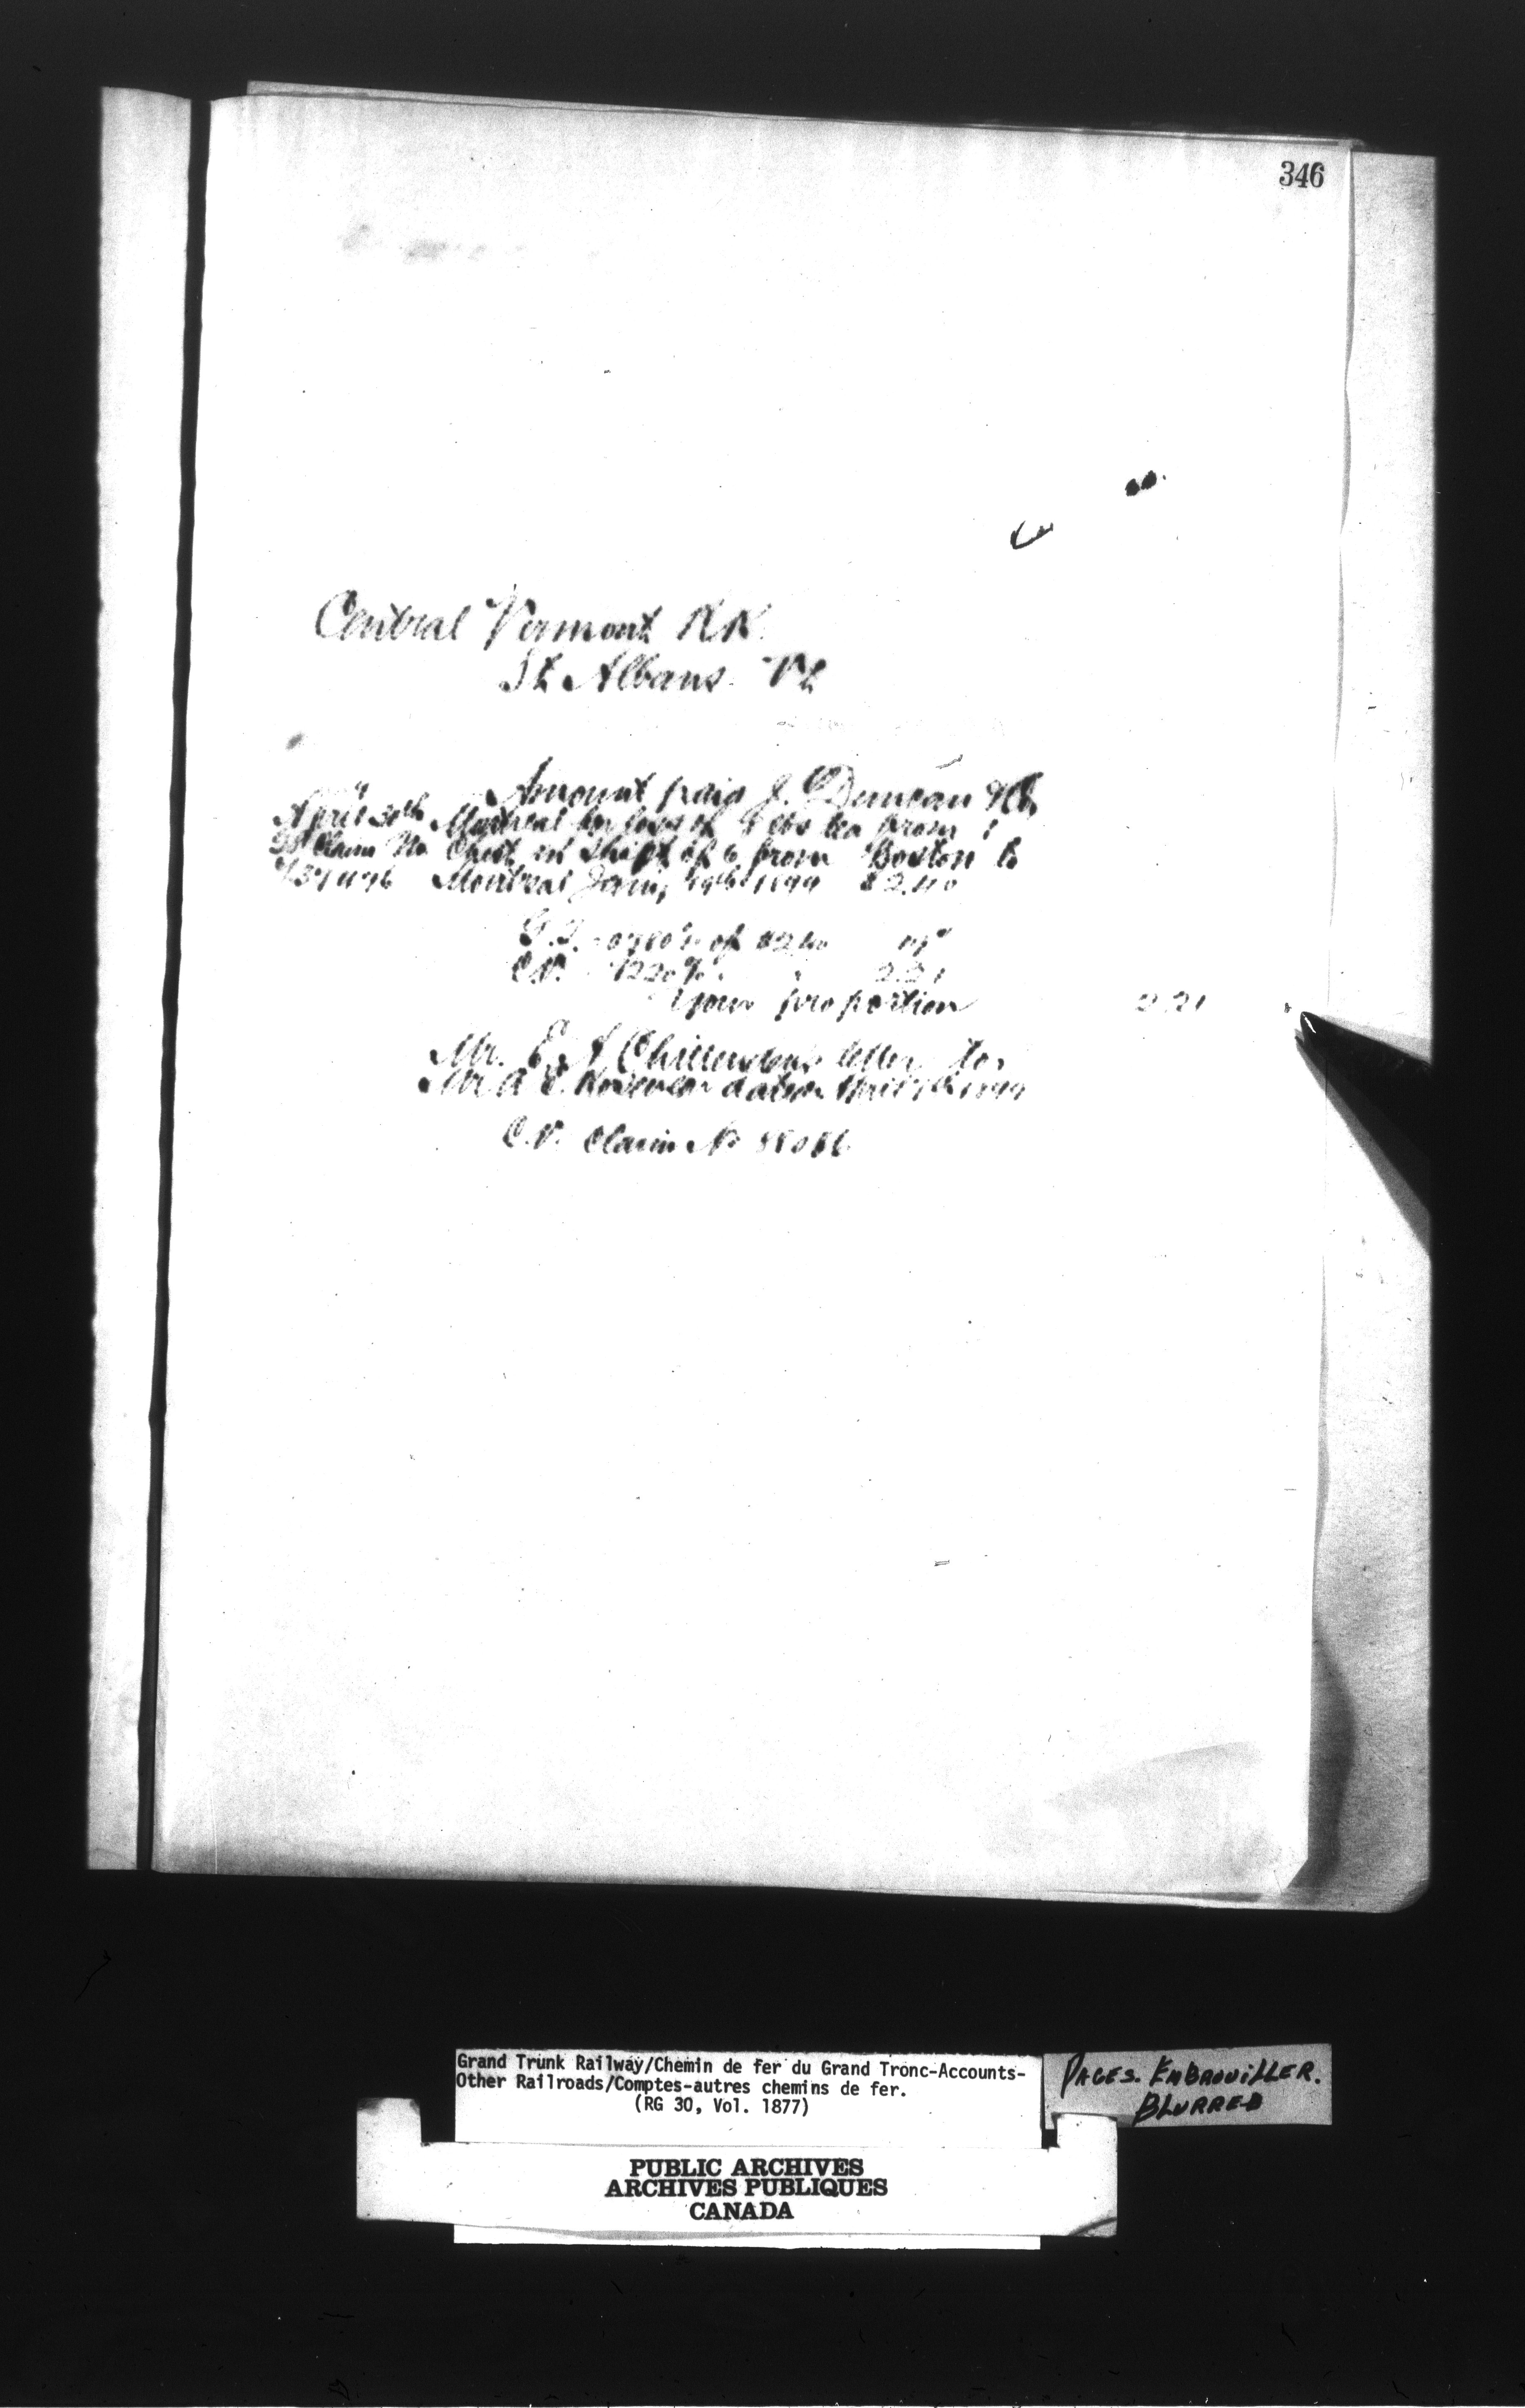 346
Central Vermont RR.
St Albans Vt
Amount paid J. Duncan & Co
April 30th Montreal for loss of 8 lbs tea from 1
Claim No Chest in shipt of 6 from Boston to
Montreal 1899 $2.40
G.T. 0780% of $2.40 19
C.V. 9220% 2.21
Your proportion 2.21
Mr. E. A. Chittenden's letter to
Mr. A. E. dated April 1899
C.V. Claim No
Grand Trunk Railway/Chemin de fer du Grand Tronc-Accounts-
Other Railroads/Comptes-autres chemins de fer.
(RG 30, Vol. 1877)
PAGES. EMBROUILLER.
BLURRED
PUBLIC ARCHIVES
ARCHIVES PUBLIQUES
CANADA